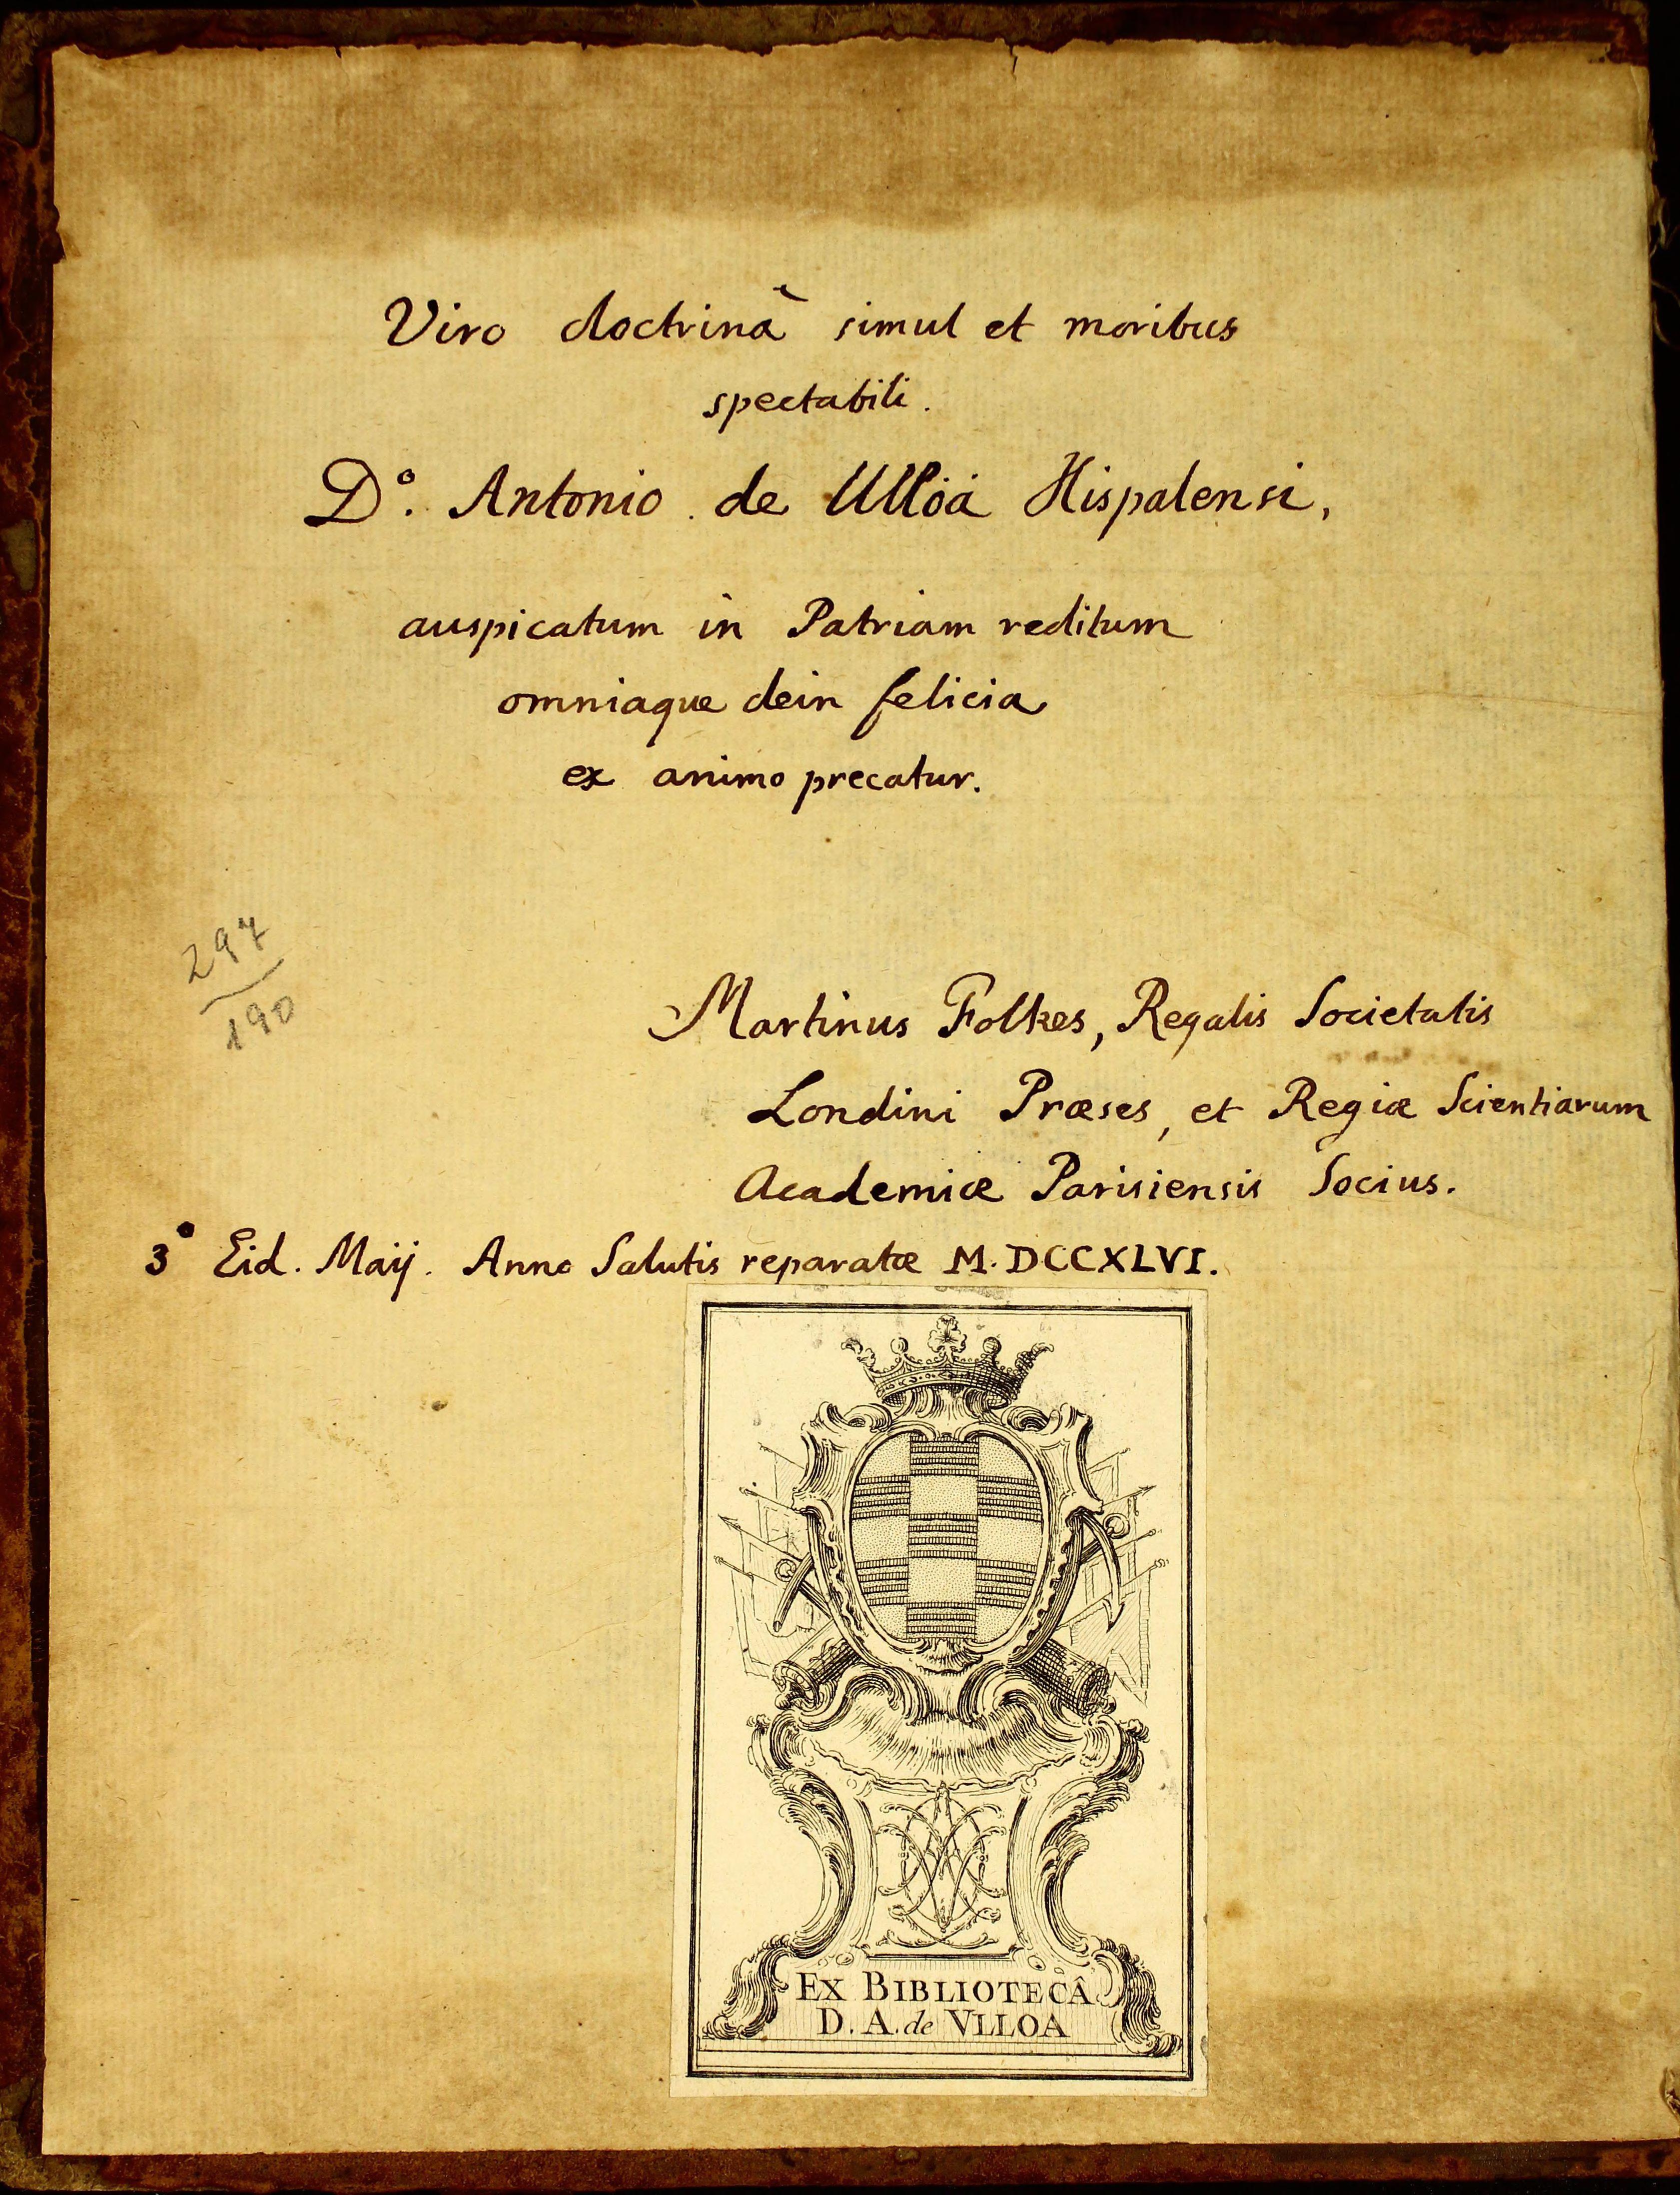 Viro doctrinà simul et moribus
spectabili.
Dº. Antonio de Ulloa Hispalensi,
auspicatum in Patriam reditum
omniaque dein felicia
ex animo precatur.
297
190
Martinus Folkes, Regalis Societatis
Londini Præses, et Regiæ Scientiarum
Academiæ Parisiensis Socius.
3º Eid. Maij. Anno Salutis reparatæ M.DCCXLVI.
EX BIBLIOTECÂ
D. A. de VLLOA